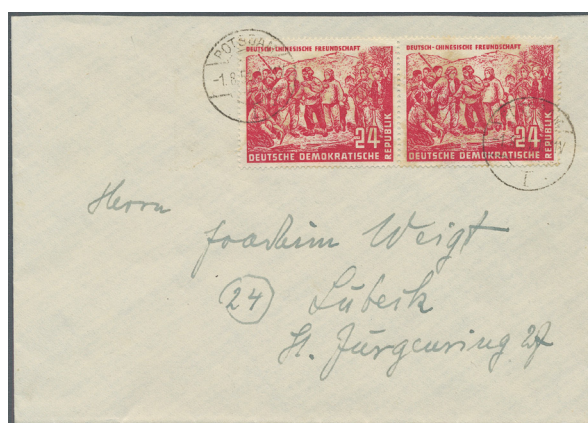 DEUTSCH-CHINESISCHE FREUNDSCHAFT
24
DEUTSCHE DEMOKRATISCHE REPUBLIK
DEUTSCH-CHINESISCHE FREUNDSCHAFT
24
DEUTSCHE DEMOKRATISCHE REPUBLIK
POTSDAM
-1.8.5
Herrn
Joachim Weigt
24 Lübeck
St. Jürgenring 27